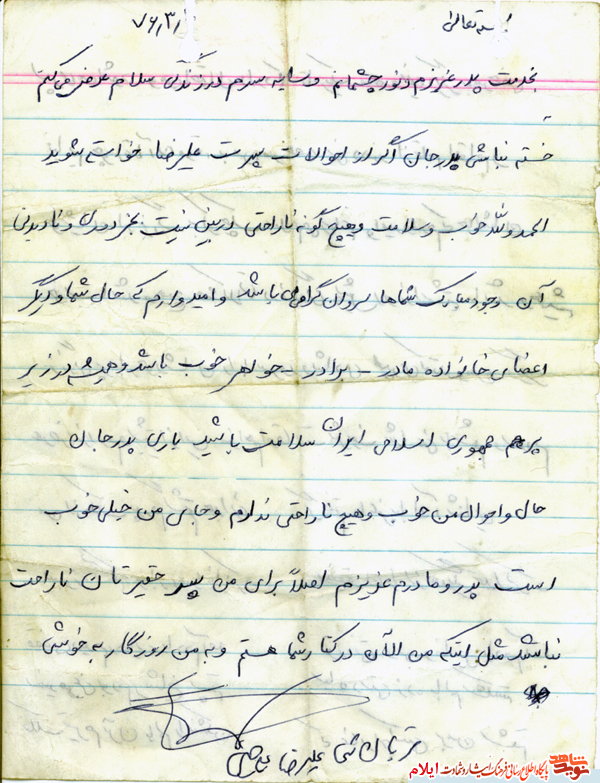 بسمه تعالی
۷۶/۳/۱
بخدمت پدر عزیزم و نور چشمانم و سایه سرم در زندگی سلام عرض می‌کنم
خسته نباشی پدر جان اگر از احوالات پسرت علیرضا خواسته شوید
الحمد و لله خوب و سلامت و هیچ گونه ناراحتی در بین نیست بجز دوری و نادیدنی
آن وجود مبارک شماها سروران گرامی باشد و امیدوارم که حال شما و دیگر
اعضای خانواده مادر - برادر - خواهر خوب باشد و همیشه در زیر
پرچم جمهوری اسلامی ایران سلامت باشید باری پدر جان
حال و احوال من خوب و هیچ ناراحتی ندارم و جای من خیلی خوب
است پدر و مادرم عزیزم اصلاً برای من پسر حقیرتان ناراحت
نباشید مثل اینکه من الآن در کنار شما هستم و به من روزگار به خوشی
علیرضا
نوید شاهد
پایگاه اطلاع رسانی فرهنگ ایثار و شهادت ایلام